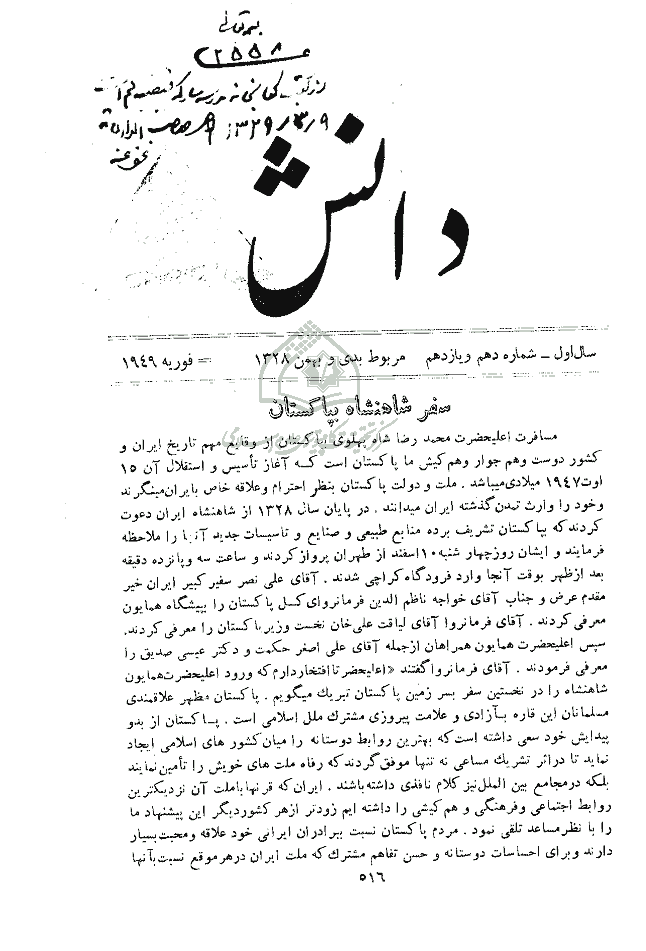 بسمه تعالی
۲۵۵۸
۱۳۲۹/۳/۹
دانش
سال اول ــ شماره دهم و یازدهم مربوط بدی و بهمن ۱۳۲۸ = فوریه ۱۹٤۹
سفر شاهنشاه بپاکستان
مسافرت اعلیحضرت محمد رضا شاه پهلوی بپاکستان از وقایع مهم تاریخ ایران و
کشور دوست وهم جوار وهم کیش ما پاکستان است کـه آغاز تأسیس و استقلال آن ۱۵
اوت ۱۹٤۷ میلادی میباشد . ملت و دولت پاکستان بنظر احترام وعلاقه خاص بایران مینگرند
وخود را وارث تمدن گذشته ایران میدانند . در پایان سال ۱۳۲۸ از شاهنشاه ایران دعوت
کردند که بپاکستان تشریف برده منابع طبیعی و صنایع و تاسیسات جدید آنها را ملاحظه
فرمایند و ایشان روز چهار شنبه ۱۰ اسفند از طهران پرواز کردند و ساعت سه و پانزده دقیقه
بعد از ظهر بوقت آنجا وارد فرودگاه کراچی شدند . آقای علی نصر سفیر کبیر ایران خیر
مقدم عرض و جناب آقای خواجه ناظم الدین فرمانروای کـل پاکستان را بپیشگاه همایون
معرفی کردند . آقای فرمانروا آقای لیاقت علی خان نخست وزیر پاکستان را معرفی کردند.
سپس اعلیحضرت همایون همراهان ازجمله آقای علی اصغر حکمت و دکتر عیسی صدیق را
معرفی فرمودند . آقای فرمانروا گفتند «اعلیحضرتا افتخار دارم که ورود اعلیحضرت همایون
شاهنشاه را در نخستین سفر بسر زمین پاکستان تبریك میگویم . پاکستان مظهر علاقمندی
مسلمانان این قاره بـآزادی و علامت پیروزی مشترك ملل اسلامی است . پـاکستان از بدو
پیدایش خود سعی داشته است که بهترین روابط دوستانه را میان کشور های اسلامی ایجاد
نماید تا دراثر تشریك مساعی نه تنها موفق گردند که رفاه ملت های خویش را تأمین نمایند
بلکه درمجامع بین الملل نیز کلام نافذی داشته باشند . ایران که قرنها باملت آن نزدیکترین
روابط اجتماعی وفرهنگی و هم کیشی را داشته ایم زودتر از هر کشور دیگر این پیشنهاد ما
را با نظر مساعد تلقی نمود . مردم پاکستان نسبت ببرادران ایرانی خود علاقه ومحبت بسیار
دارند وبرای احساسات دوستانه و حسن تفاهم مشترك که ملت ایران درهر موقع نسبت بآنها
۵۱٦